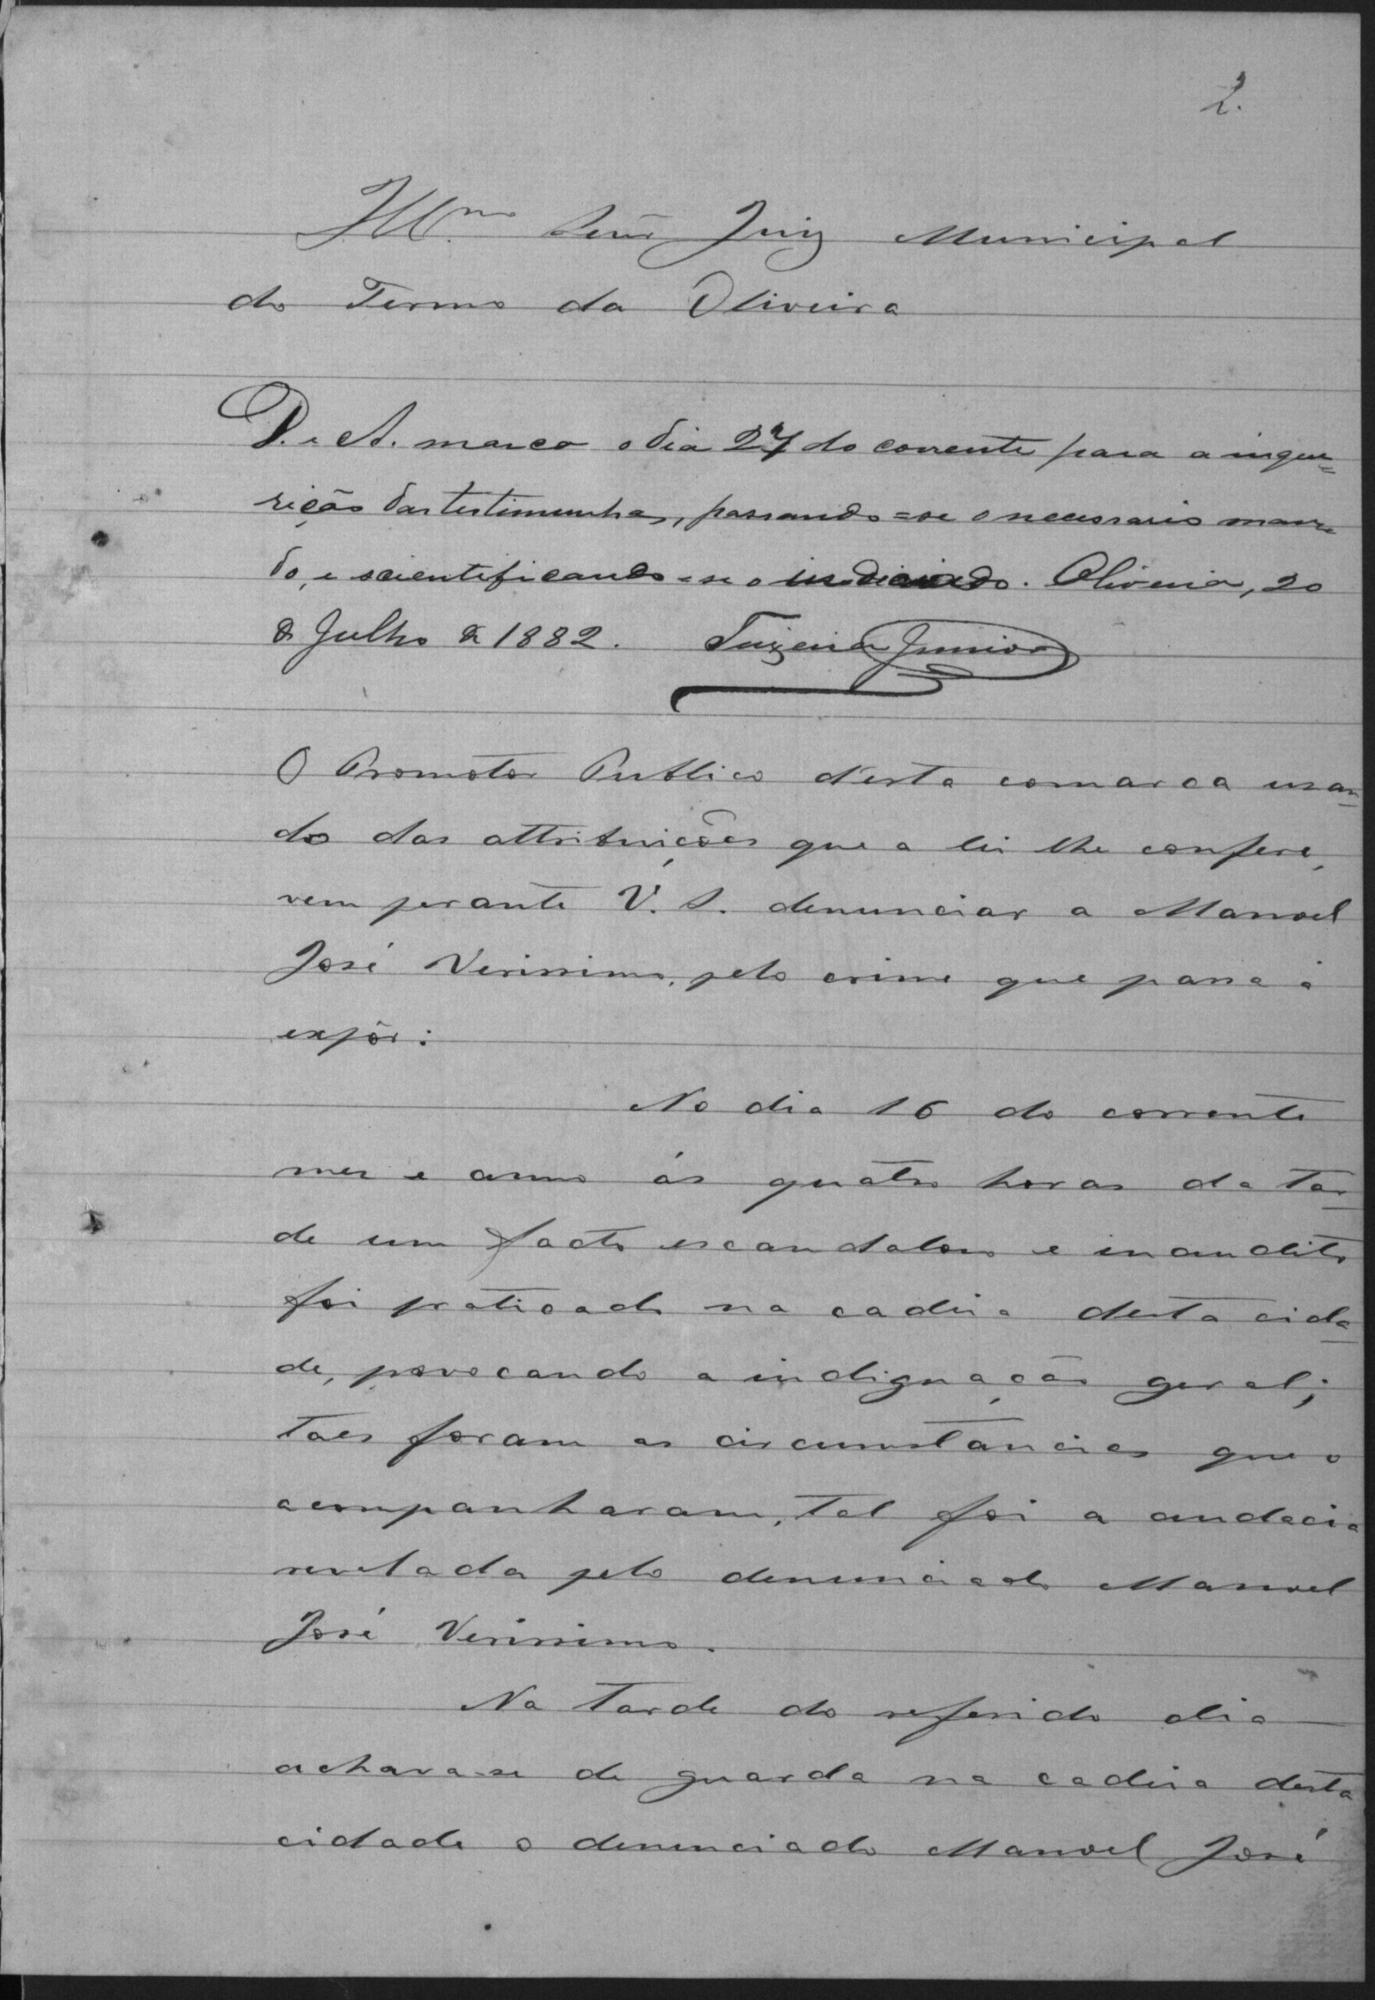 2.
Illmo. Senr Juiz Municipal
do Termo da Oliveira
D. e A. marco o dia 27 do corrente para a inque=
rição das testimunhas, passando=se o necessario man=
do, e scientificando-se o indiciado. Oliveira, 20
de Julho de 1882. Teixeira Junior
O Promotor Publico d'esta comarca usan-
do das attribuições que a lei lhe confere,
vem perante V. S. denunciar a Manoel
José Verissimo, pelo crime que passa á
expôr:
No dia 16 do corrente
mez e anno ás quatro horas da tar-
de um facto escandaloso e inaudito
foi praticado na cadeia desta cida-
de, provocando a indignação geral;
taes foram as circumstancias que o
acompanharam, tal foi a audacia
revelada pelo denunciado Manoel
José Verissimo.
Na tarde do referido dia
achava-se de guarda na cadeia desta
cidade o denunciado Manoel José